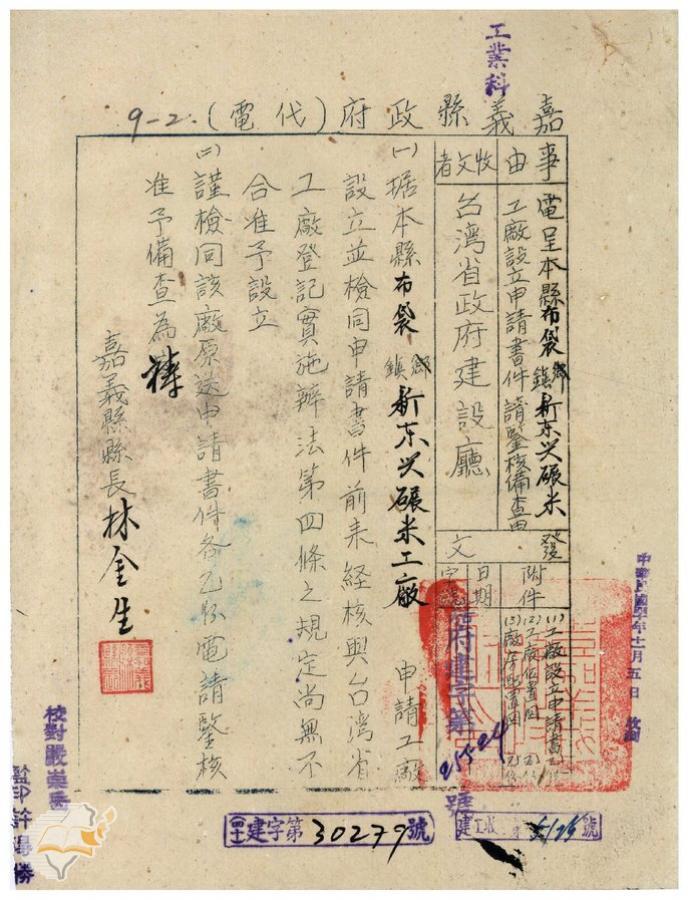 工業科
嘉義縣政府(代電) 9-2.
事由
電呈本縣布袋鄉鎮新东兴碾米
工廠設立申請書件請鑒核備查由
收文者
台湾省政府建設廳
發文
附件
(1)工廠設立申請書
(2)工廠位置圖
(3)
日期
字號
府建字第25524號
(一)据本縣布袋鄉鎮新东兴碾米工廠 申請工廠
設立並檢同申請書件前来経核與台湾省
工廠登記實施辦法第四條之規定尚無不
合准予設立
(二)謹檢同該廠原送申請書件各乙份電請鑒核
准予備查為禱
嘉義縣縣長林金生
中華民國年十一月五日
校對嚴
監印許勝
四十建字第30279號
建號